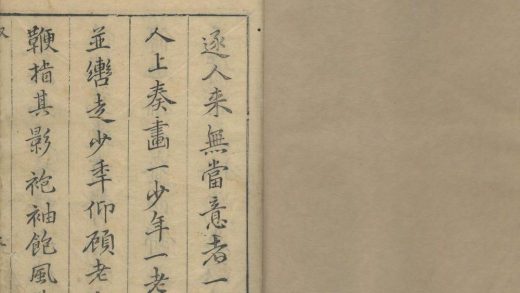 逐人来無當意者一
人上奏畫一少年一老
並轡走少年仰碩老
鞭指其影袍袖飽風